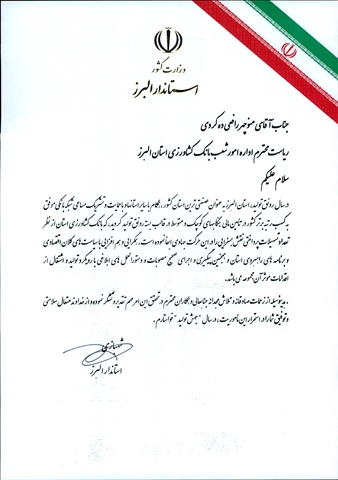 وزارت کشور
استاندار البرز
جناب آقای منوچهر رافعی ده کردی
ریاست محترم اداره امور شعب بانک کشاورزی استان البرز
سلام علیکم
در سال رونق تولید، استان البرز به عنوان صنعتی ترین استان کشور، همگام با سایر استانها و با عنایت و تشریک مساعی شبکه بانکی موفق
به کسب رتبه برتر کشور در تامین مالی بنگاههای کوچک و متوسط در قالب بسته رونق تولید گردید، که بانک کشاورزی استان از نظر
تعداد تسهیلات پرداختی نقش بسزایی را در این حرکت جهادی ایفا نموده است. همگرایی و هم افزایی با سیاست های کلان اقتصادی
و برنامه های راهبردی استان و همچنین پیگیری و اجرای صحیح مصوبات و دستورالعمل های ابلاغی با رویکرد تولید و اشتغال از
اقدامات موثر آن مجموعه می باشد.
بدینوسیله از زحمات صادقانه و تلاش مجدانه جنابعالی و همکاران محترم در تحقق این امر مهم تقدیر و تشکر نموده و از خداوند متعال سلامتی
و توفیق شما را در استمرار این ماموریت، در سال "جهش تولید" خواستارم.
شهبازی
استاندار البرز